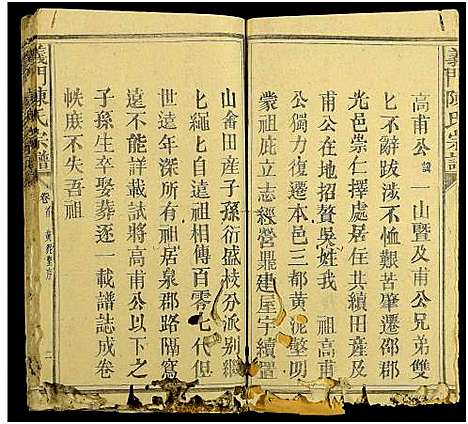 義門陳氏宗譜
高甫公諱一山暨及甫公兄弟雙
匕不辭跋涉不恤艱苦肇遷邵郡
光邑崇仁擇處居住共續田産及
甫公在地招贅吳姓我 祖高甫
公獨力奉還本邑三都黄泥
蒙祖庶立志經營鼎建屋宇續置
山畬田産子孫衍盛枝分派别繼
匕繩匕自遠祖相傳百零七代但
世遠年深所有祖居泉郡路隔寫
遠不能詳載試將高甫公以下之
子孫生卒娶葬逐一載譜誌成卷
帙庶不失吾祖
義門陳氏宗譜